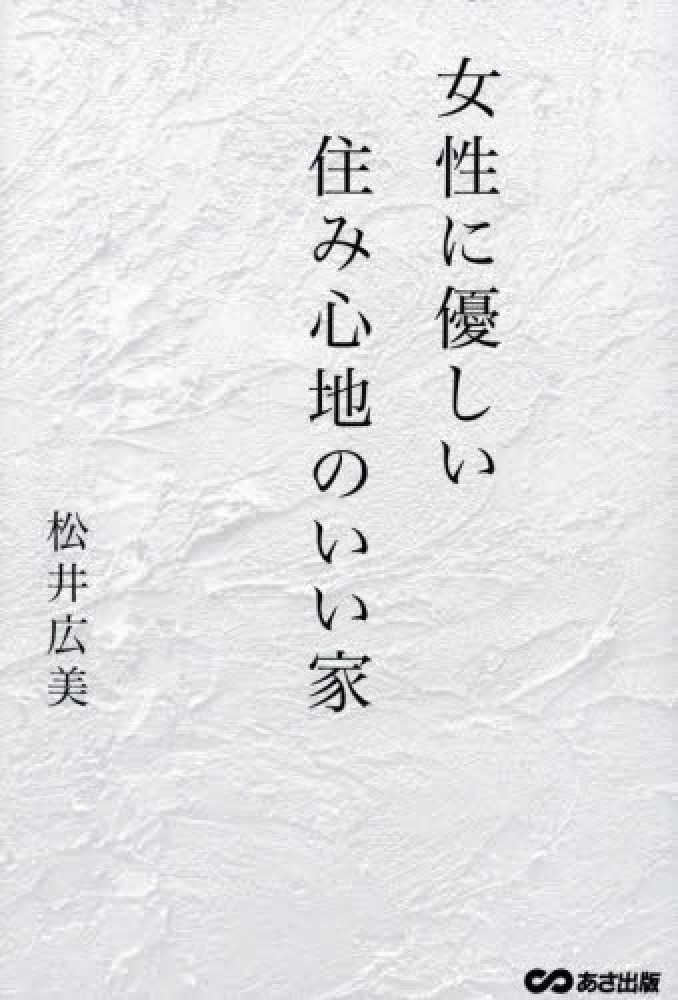 女性に優しい
住み心地のいい家
松井広美
あさ出版